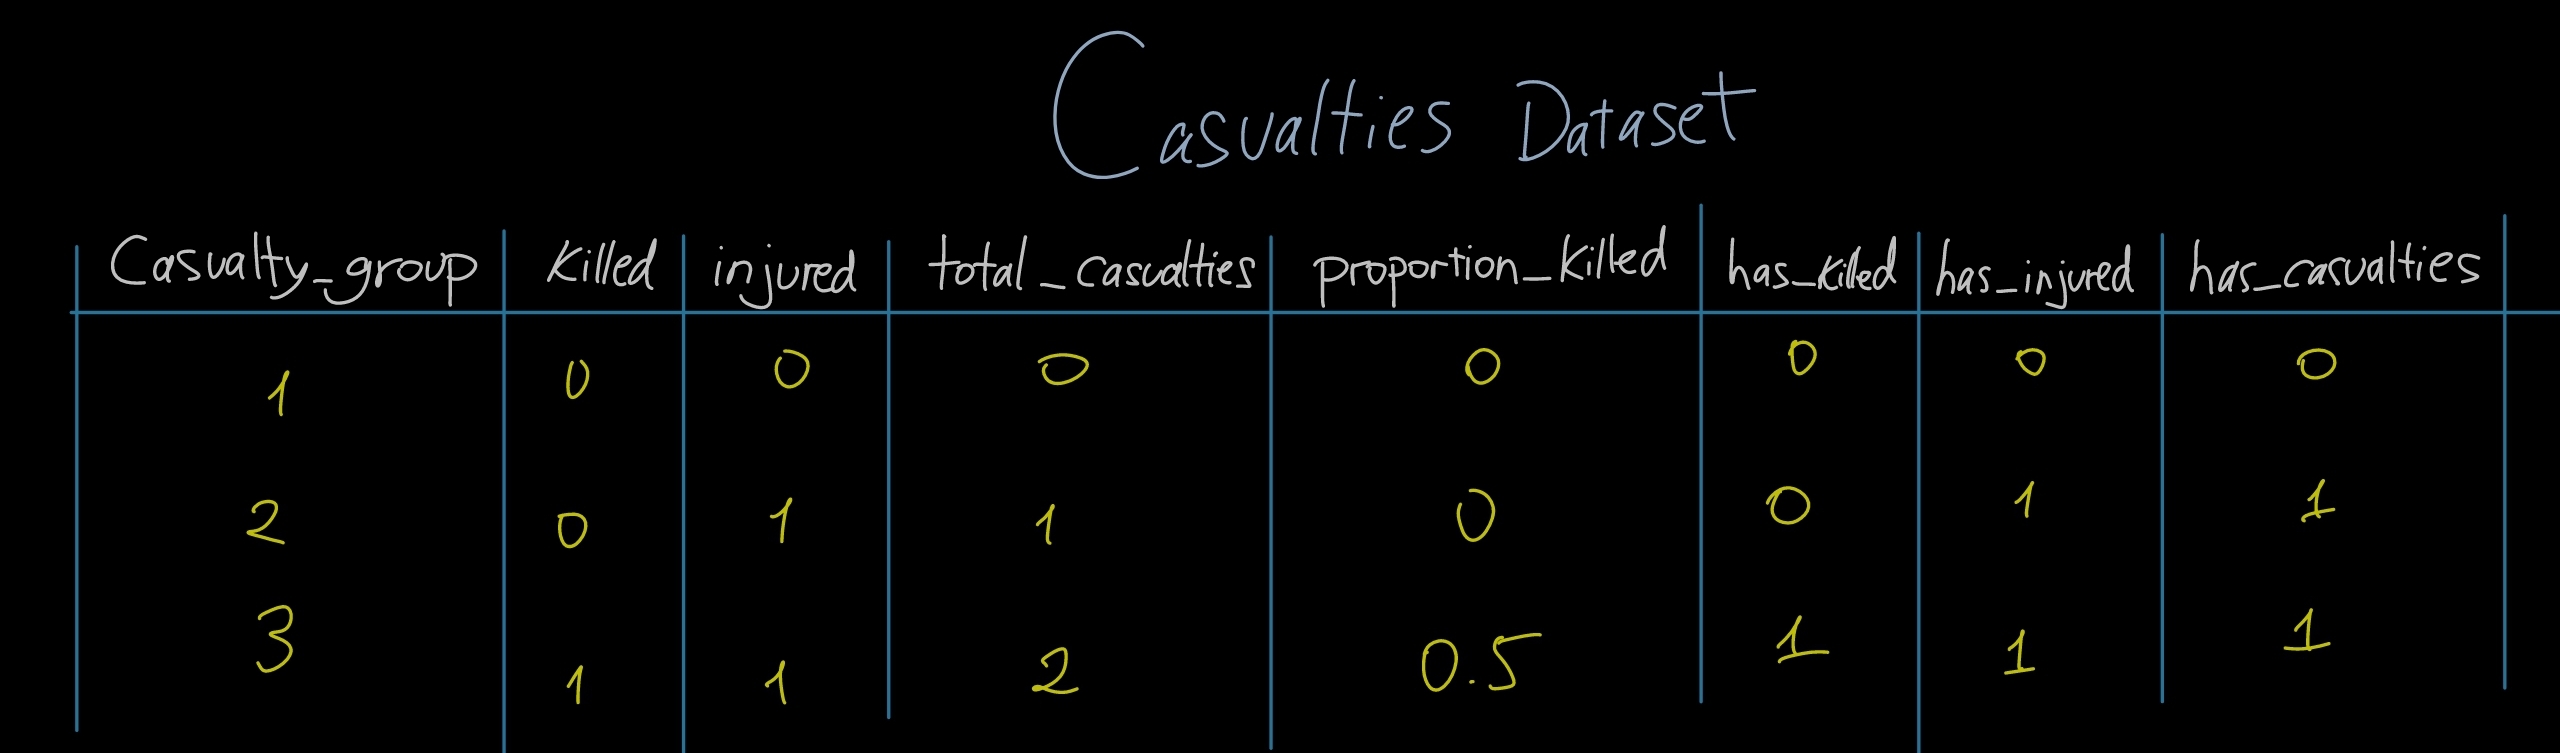 Casualties Dataset
Casualty_group killed injured total_casualties proportion_killed has_killed has_injured has_casualties
1 0 0 0 0 0 0 0
2 0 1 1 0 0 1 1
3 1 1 2 0.5 1 1 1